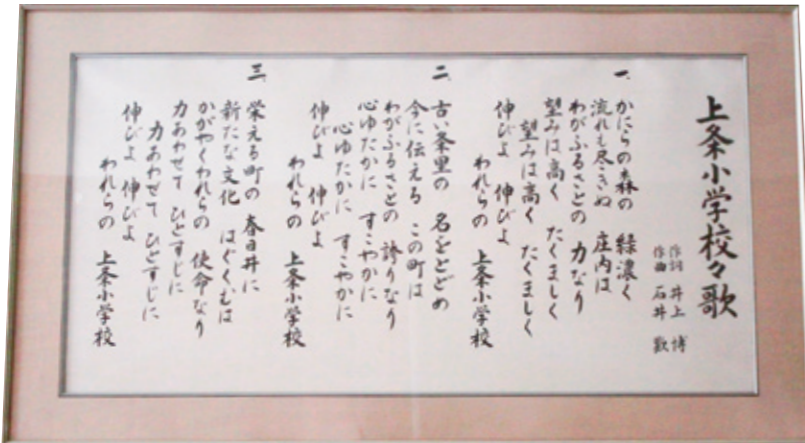 上条小学校々歌
作詞 井上 博
作曲 石井 歓
一、かにらの森の 緑濃く
流れも尽きぬ 庄内は
わがふるさとの 力なり
望みは高く たくましく
望みは高く たくましく
伸びよ 伸びよ
われらの 上条小学校
二、古い条里の 名をとどめ
今に伝える この町は
わがふるさとの 誇りなり
心ゆたかに すこやかに
心ゆたかに すこやかに
伸びよ 伸びよ
われらの 上条小学校
三、栄える町の 春日井に
新たな文化 はぐくむは
かがやくわれらの 使命なり
力あわせて ひとすじに
力あわせて ひとすじに
伸びよ 伸びよ
われらの 上条小学校